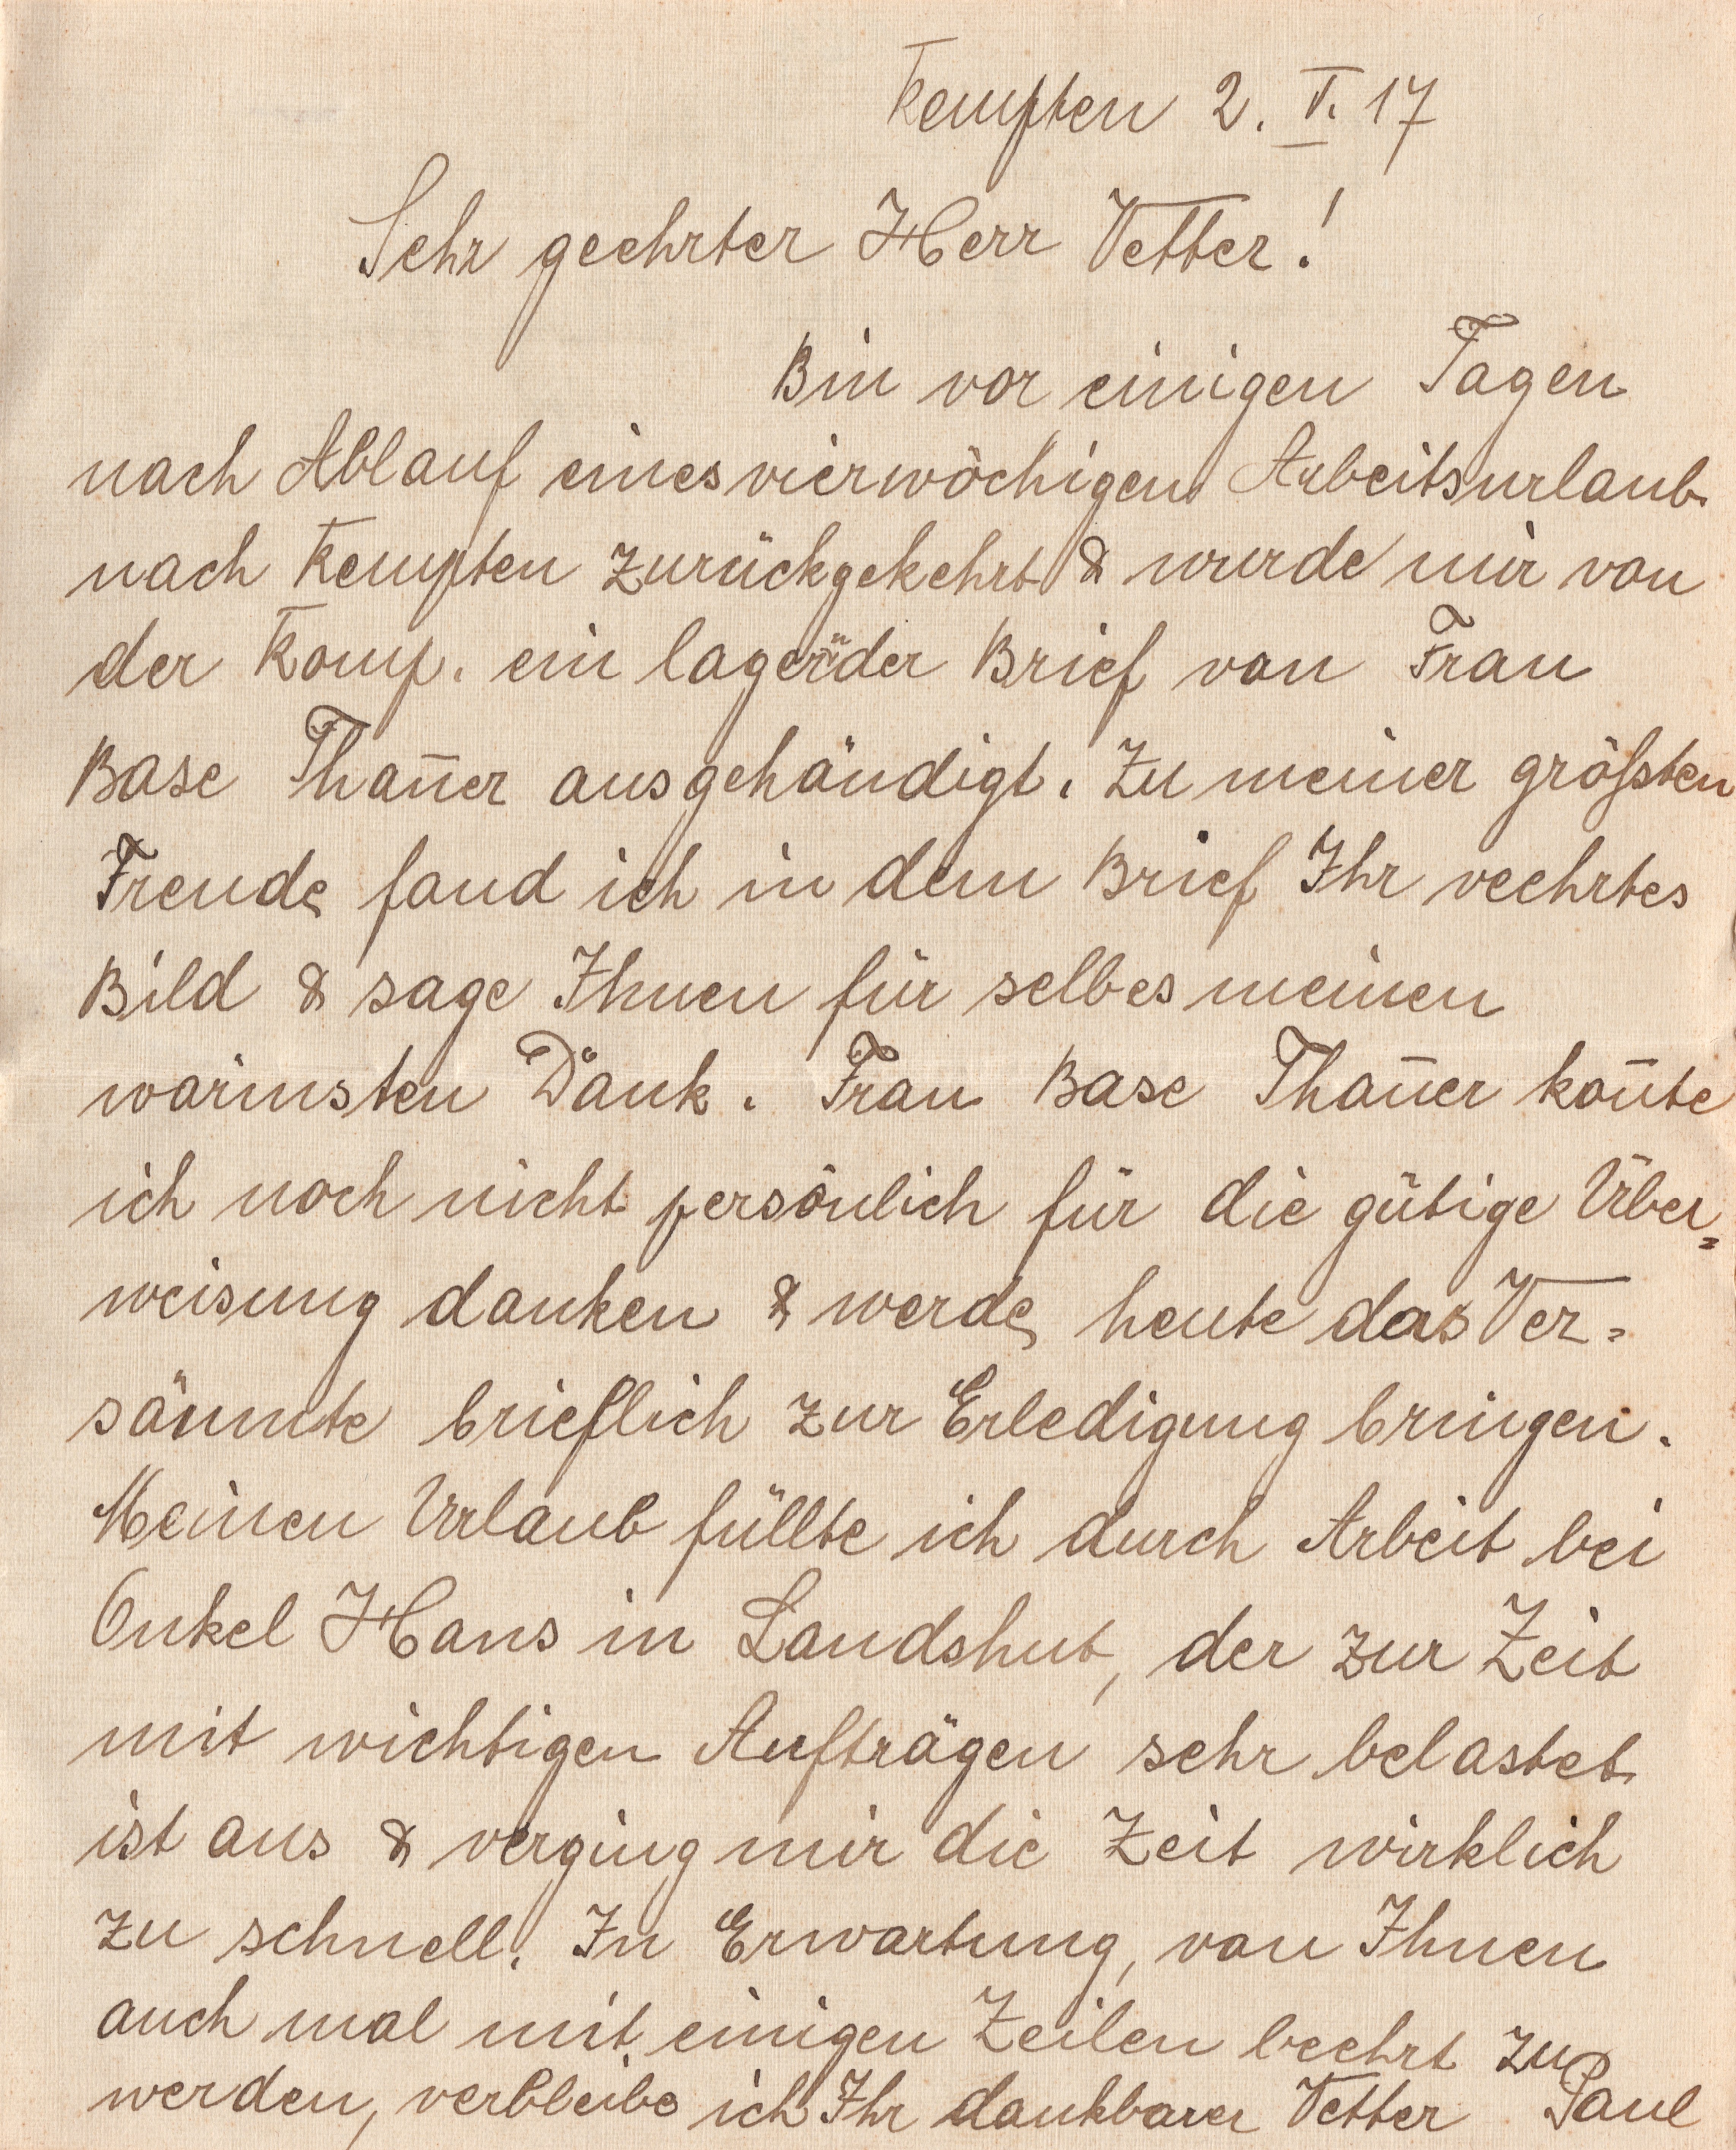 Kempten 2. V. 17
Sehr geehrter Herr Vetter!
Bin vor einigen Tagen
nach Ablauf eines vierwöchigen Arbeitsurlaub
nach Kempten zurückgekehrt & wurde mir von
der Komp. ein lagernder Brief von Frau
Base Than̄er ausgehändigt. Zu meiner größten
Freude fand ich in dem Brief Ihr veehrtes
Bild & sage Ihnen für selbes meinen
wärmsten Dank. Frau Base Than̄er kon̄te
ich noch nicht persönlich für die gütige Über=
weisung danken & werde heute das Ver=
säumte brieflich zur Erledigung bringen.
Meinen Urlaub füllte ich durch Arbeit bei
Onkel Hans in Landshut, der zur Zeit
mit wichtigen Aufträgen sehr belastet
ist aus & verging mir die Zeit wirklich
zu schnell. In Erwartung, von Ihnen
auch mal mit einigen Zeilen beehrt zu
werden, verbleibe ich Ihr dankbarer Vetter Paul